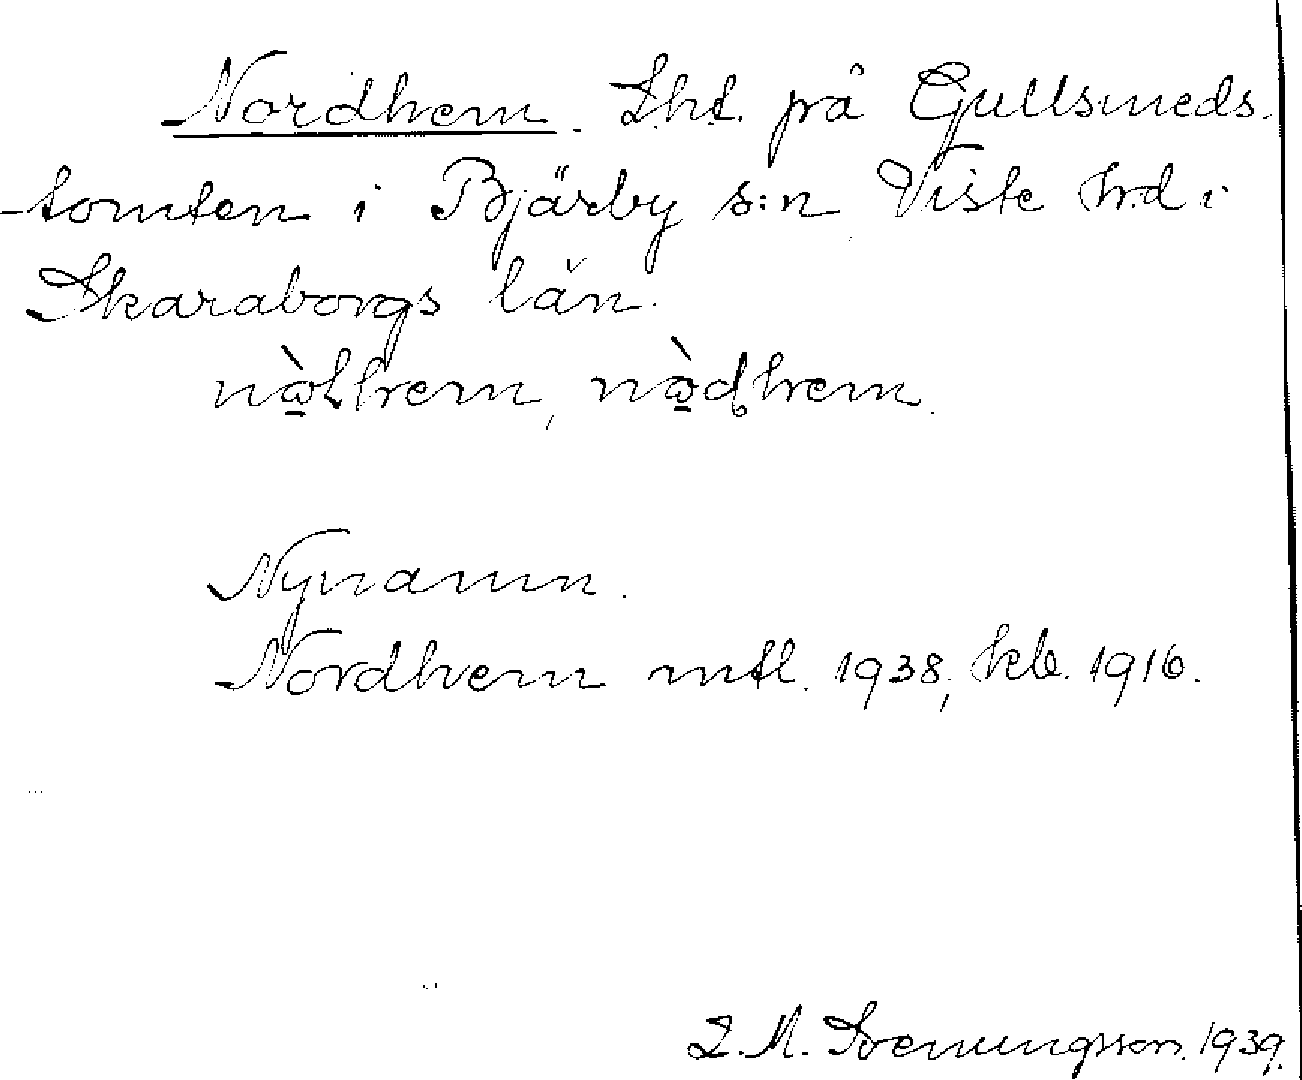 Nordhem. Lht. på Gullsmeds-
tomten i Bjärby s:n Viste hrd i
Skaraborgs län.
nòlhem, nòdhem.
Nynamn.
Nordhem mtl. 1938, kb. 1916.
L. M. Svenungsson. 1939.